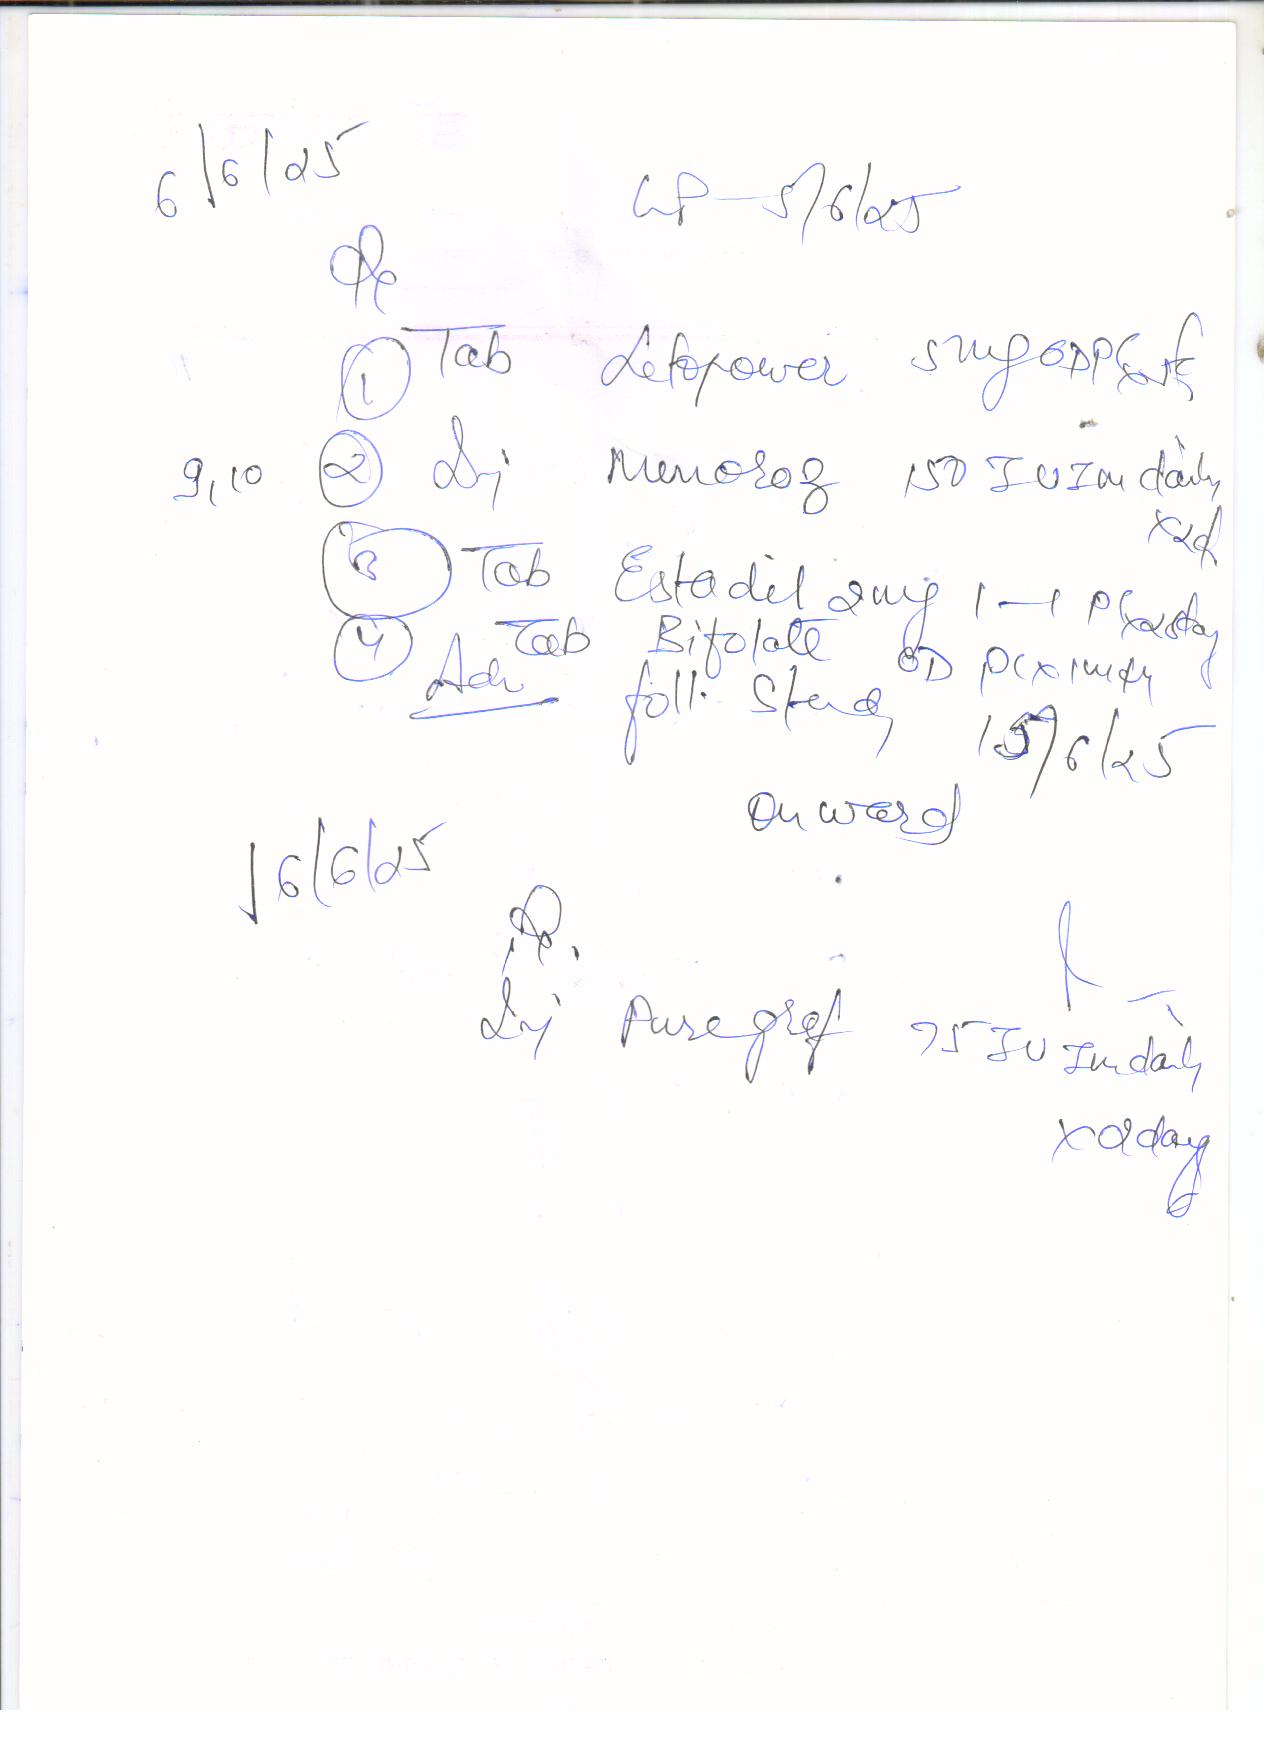 6/6/25
LP - 5/6/25
Rx
① Tab Letopower 5mg OD PC x 5d
9, 10 ② Inj Menorog 150 IU Im daily x2d
③ Tab Estadil 2mg 1-1 PC x 25day
④ Tab Bifolate OD PC x 1mth
Adv foll. Study 15/6/25
onward
16/6/25
Rx
Inj Puregraf 75 IU Im daily
x2day